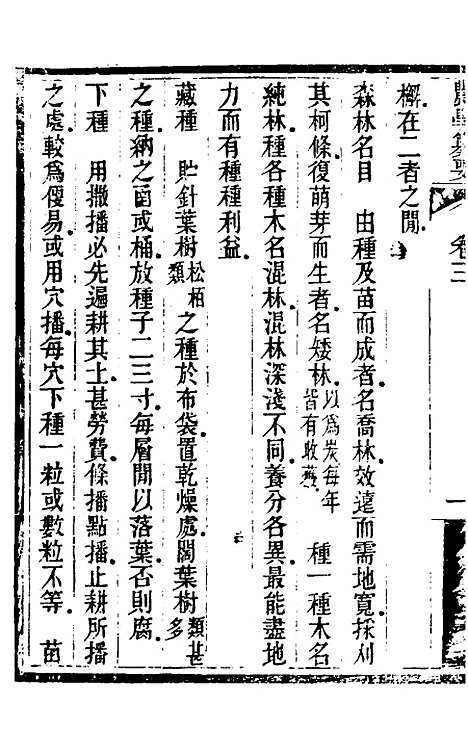 農學纂要 卷三 一
櫸在二者之閒
森林名目　由種及苗而成者名喬林效遠而需地寬採刈
其柯條復萌芽而生者名矮林以爲炭每年皆有收穫　種一種木名
純林種各種木名混林混林深淺不同養分各異最能盡地
力而有種種利益
藏種　貯針葉樹松柏類之種於布袋置乾燥處闊葉樹類甚多
之種納之函或桶放種子二三寸每層閒以落葉否則腐
下種　用撒播必先遍耕其土甚勞費條播點播止耕所播
之處較爲便易或用穴播每穴下種一粒或數粒不等　苗